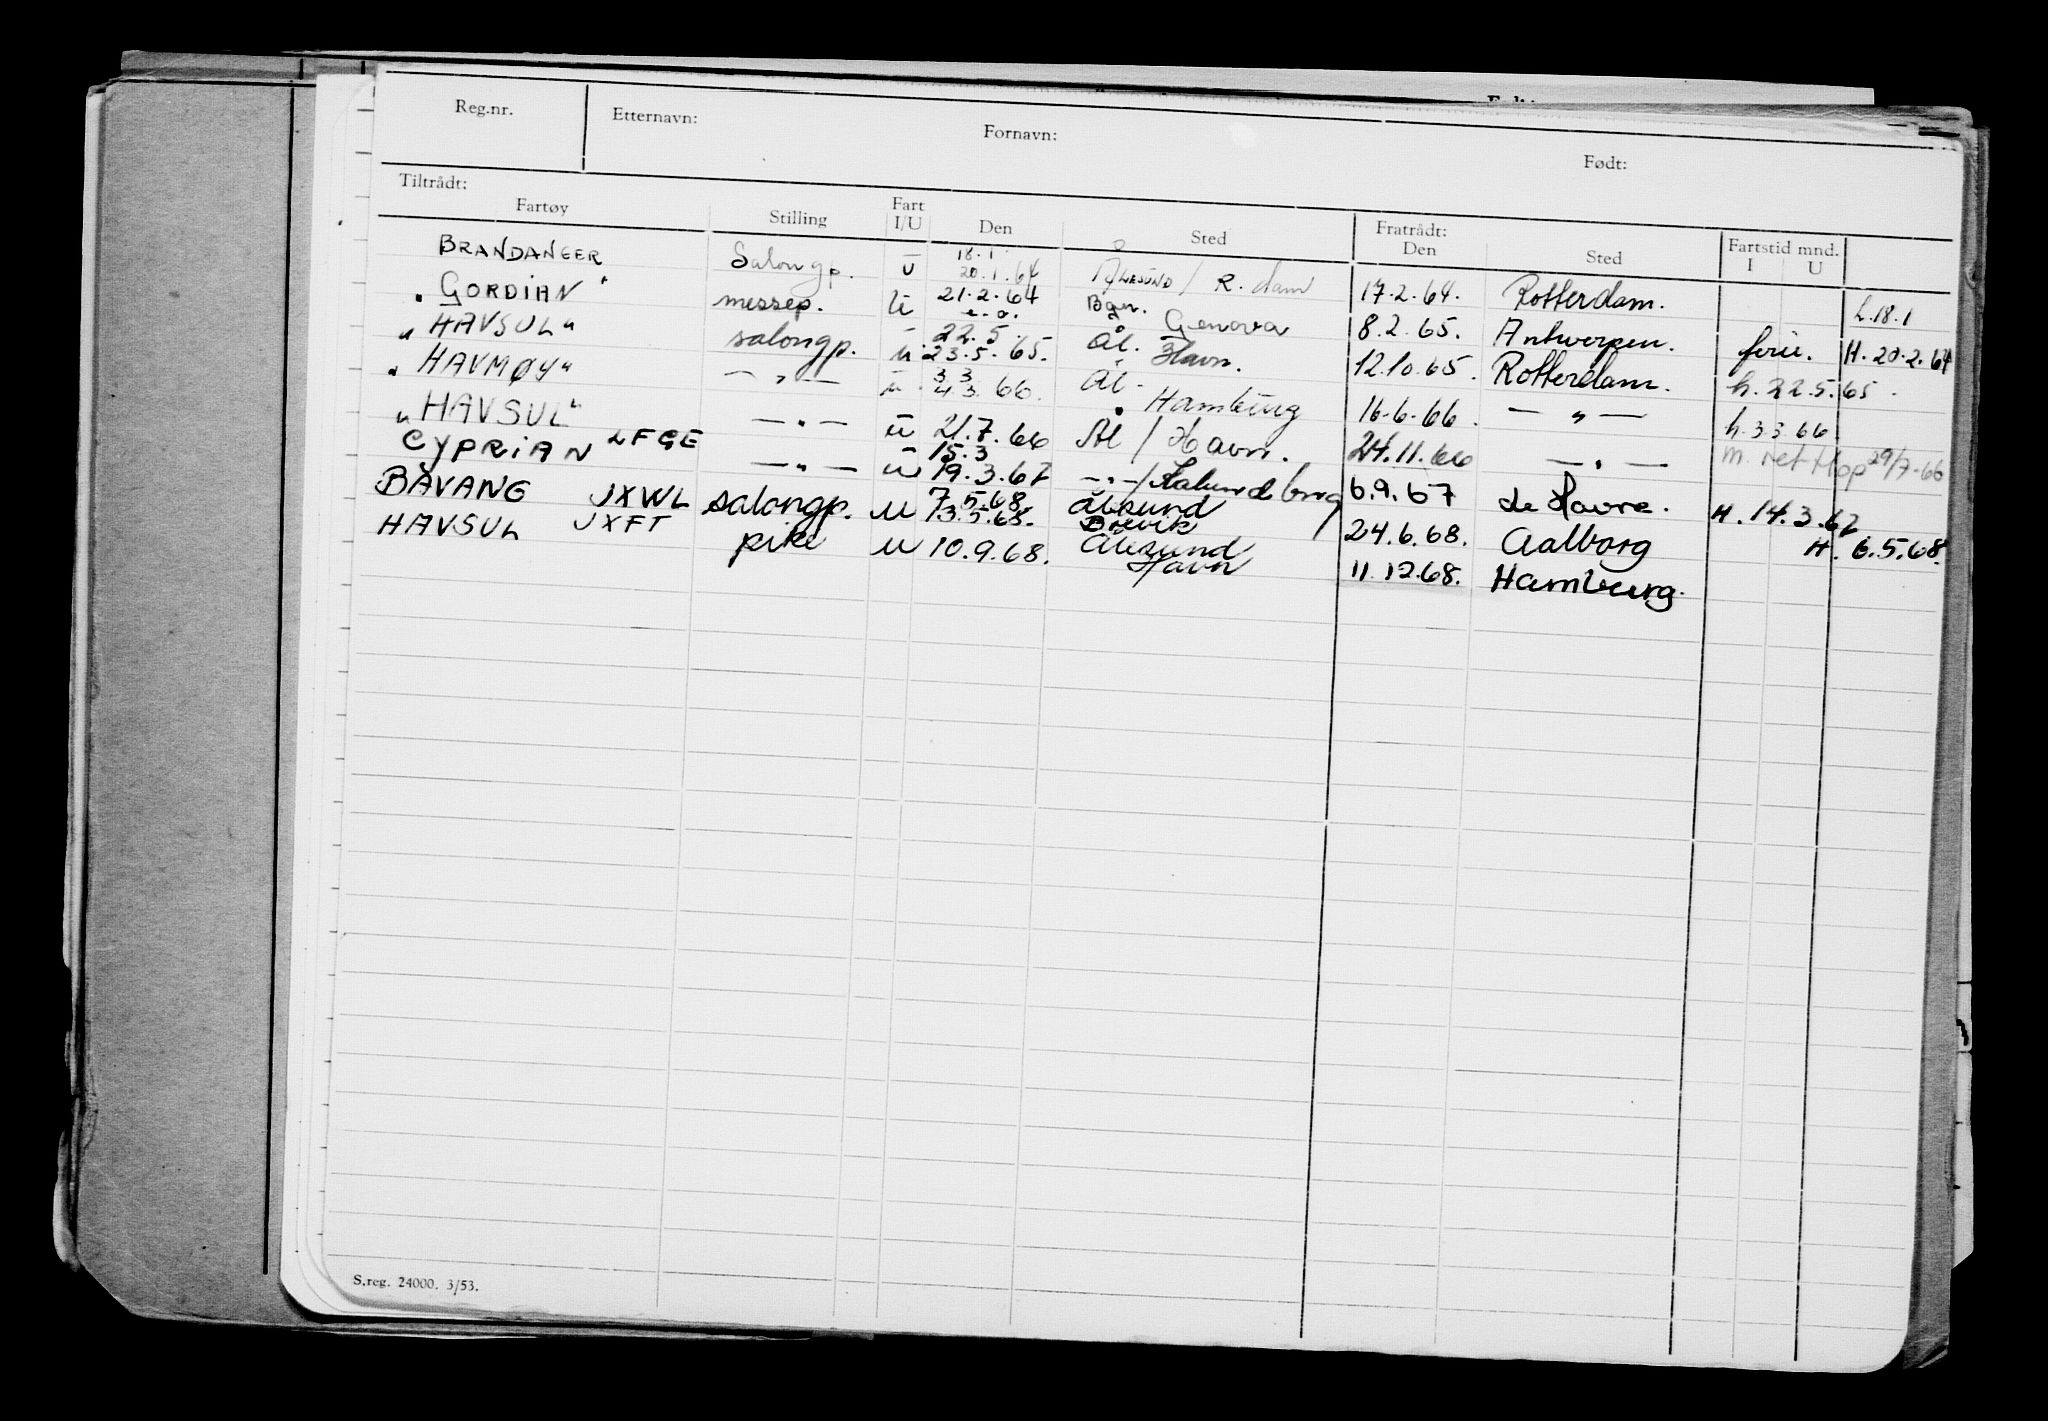 Reg.nr. Etternavn: Fornavn: Født:
Tiltrådt: Fratrådt:
Fartøy Stilling Fart I/U Den Sted Den Sted Fartstid mnd. I U
BRANDANGER Salongp. U 18.1 20.1.64 ÅLESUND / R.dam 17.2.64. Rotterdam. h.18.1
"GORDIAN" messep. U 21.2.64 Bgn. Genova 8.2.65. Antwerpen. ferie. H.20.2.64
"HAVSUL" salongp. U 22.5. 23.5.65. Ål. Havn. 12.10.65. Rotterdam. h.22.5.65.
"HAVMØY" —"— U 3.3 4.3.66. Ål. Hamburg 16.6.66. —"— h.3.3.66
"HAVSUL" —"— U 21.7.66 Ål / Havn. 24.11.66 —"— m. ret Hop 29/7-66
CYPRIAN LFGE —"— U 15.3 19.3.67 —"—/Kalundborg 6.9.67 Le Havre. H.14.3.67
BAVANG JXWL salongp. U 7.5.68. 13.5.68. Ålesund Brevik 24.6.68. Aalborg H. 6.5.68.
HAVSUL JXFT pike U 10.9.68. Ålesund Havn 11.12.68. Hamburg.
S.reg. 24000. 3/53.